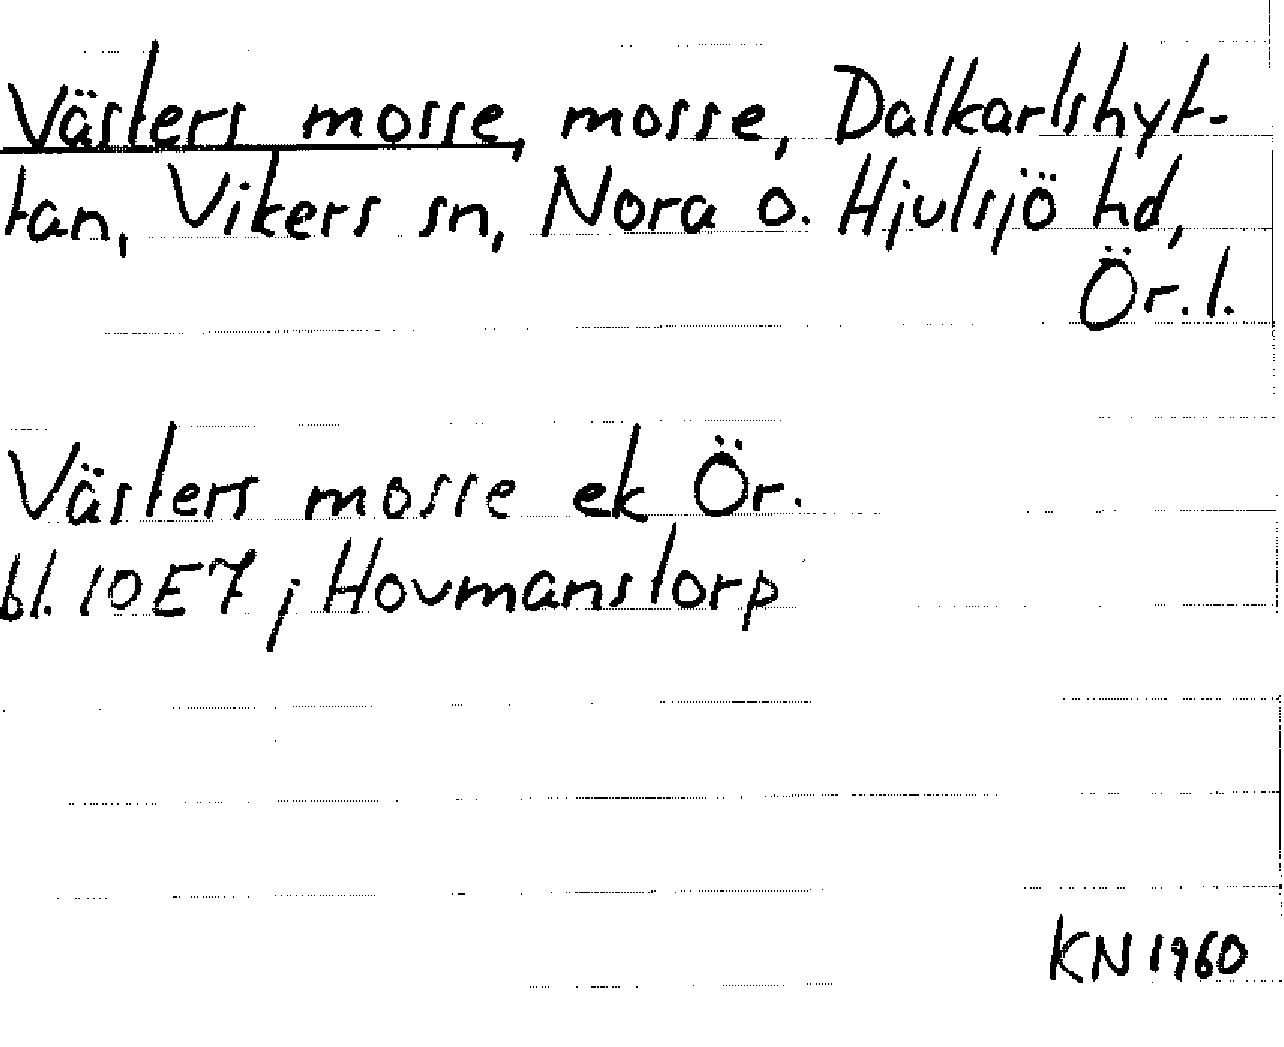 Västers mosse, mosse, Dalkarlshyt-
tan, Vikers sn, Nora o. Hjulsjö hd,
Ör. l.
Västers mosse ek Ör.
bl. 10E7 j Hovmanstorp
KN 1960